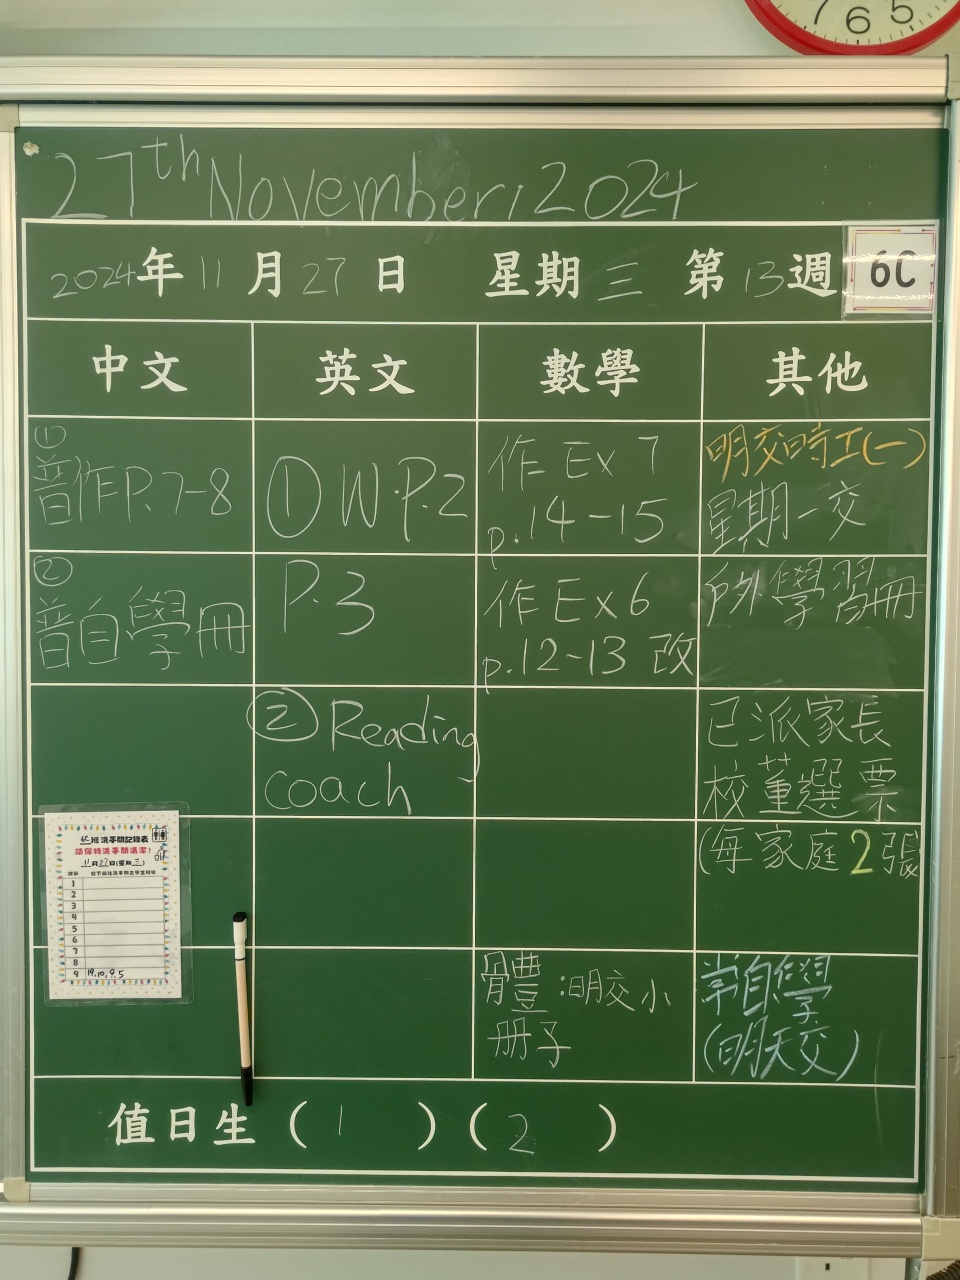 7 6 5
27th November, 2024
2024年11月27日 星期三 第13週
6C
中文 英文 數學 其他
①
普作P.7-8
① W.P.2
作 Ex 7
p.14-15
明交時工(一)
星期一交
②
普自學冊
P.3
作 Ex 6
p.12-13 改
戶外學習冊
② Reading
coach
已派家長
校董選票
(每家庭2張
6C班洗手間記錄表
請保持洗手間清潔!
11月27日(星期三)
1
2
3
4
5
6
7
8
9 19,10,9,5
體:明交小
冊子
常自學
(明天交)
值日生(1)(2)